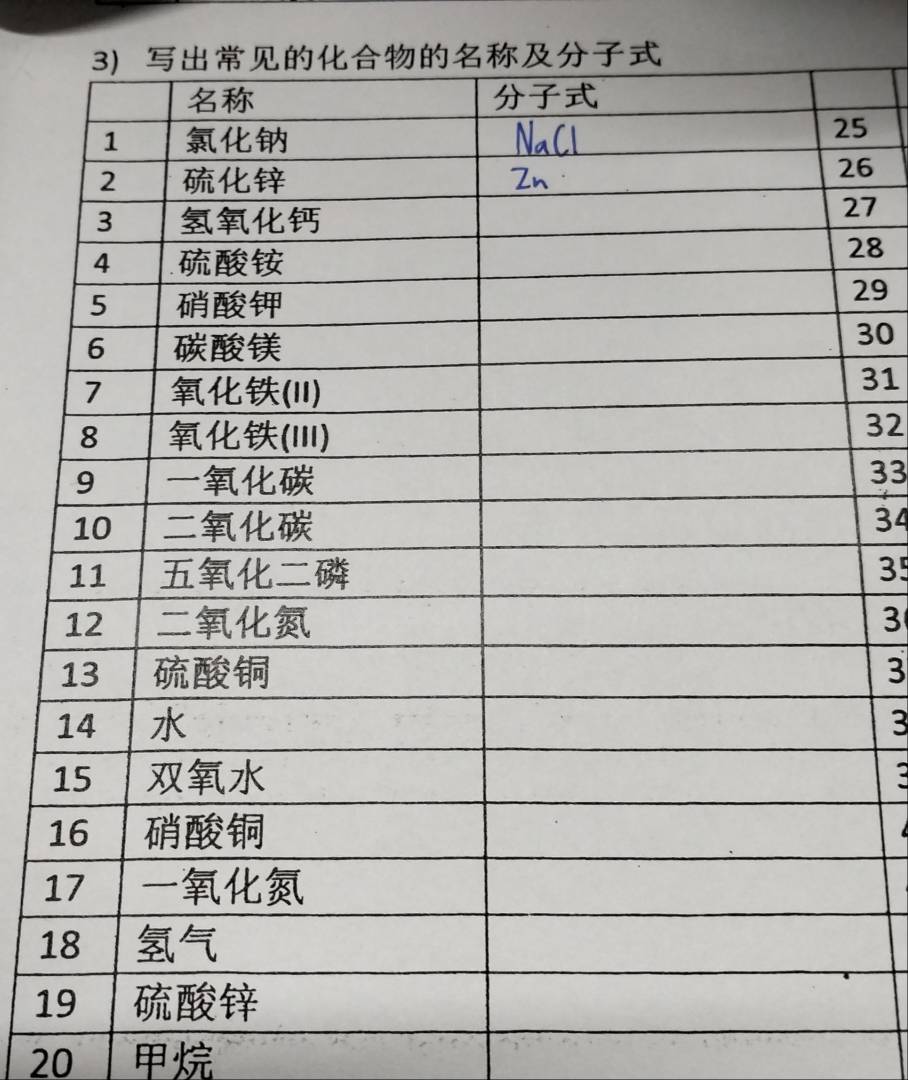 3) 写出常见的化合物的名称及分子式
名称 分子式
1 氯化钠 NaCl 25
2 硫化锌 Zn 26
3 氢氧化钙 27
4 硫酸铵 28
5 硝酸钾 29
6 碳酸镁 30
7 氧化铁(II) 31
8 氧化铁(III) 32
9 一氧化碳 33
10 二氧化碳 34
11 五氧化二磷 35
12 二氧化氮 3
13 硫酸铜 3
14 水 3
15 双氧水 3
16 硝酸铜
17 一氧化氮
18 氢气
19 硫酸锌
20 甲烷